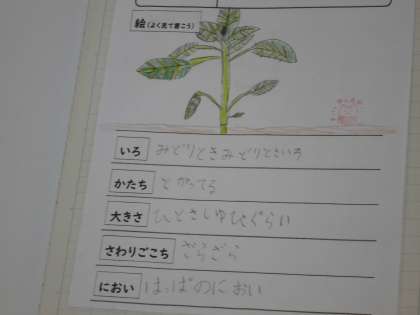 絵(よく見て書こう)
いろ みどりときみどりとちいろ
かたち とがってる
大きさ ひとさしゆびぐらい
さわりごこち ざらざら
におい はっぱのにおい